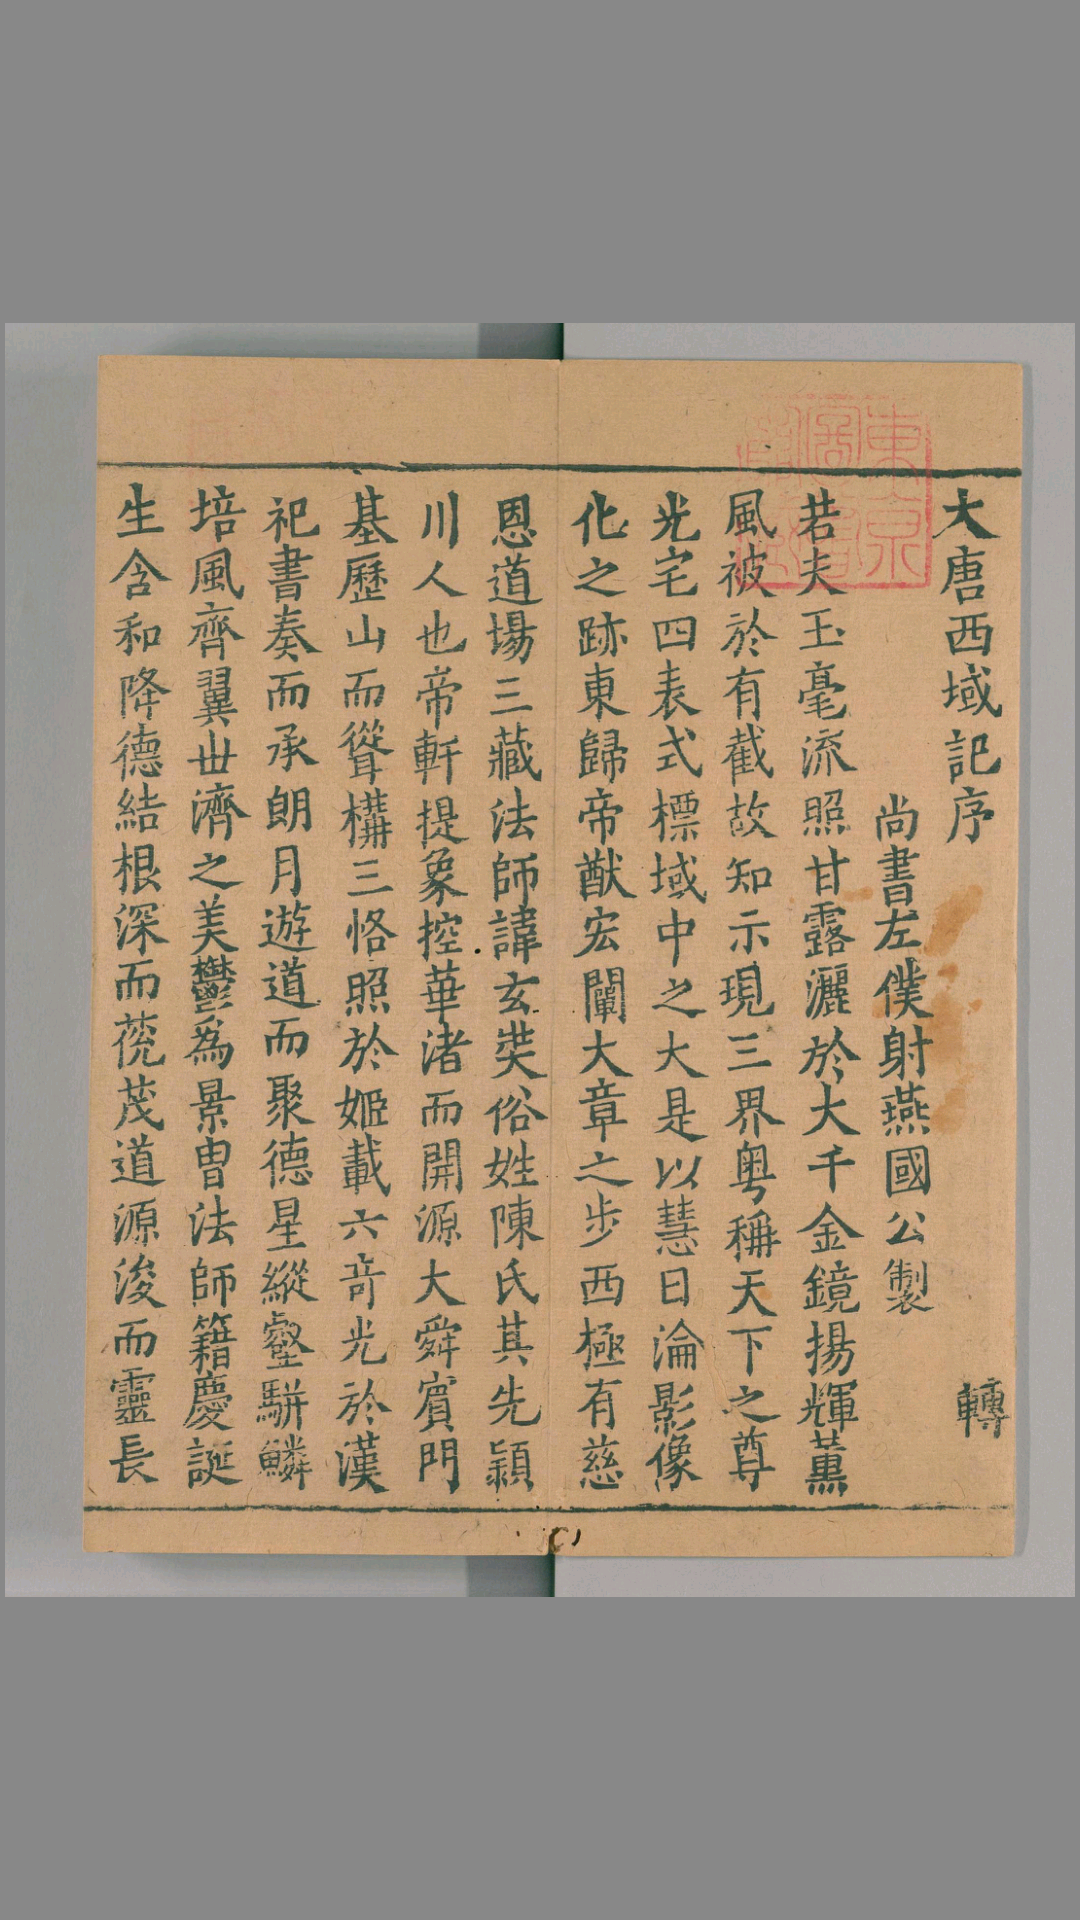 大唐西域記序
轉
尚書左僕射燕國公製
若夫玉毫流照甘露灑於大千金鏡揚輝薰
風被於有截故知示現三界粵稱天下之尊
光宅四表式標域中之大是以慧日淪影像
化之跡東歸帝猷宏闡大章之步西極有慈
恩道場三藏法師諱玄奘俗姓陳氏其先潁
川人也帝軒提象控華渚而開源大舜賓門
基歷山而聳構三恪照於姬載六奇光於漢
祀書奏而承朗月遊道而聚德星縱壑駢鱗
培風齊翼世濟之美鬱為景胄法師籍慶誕
生含和降德結根深而蓯茂道源浚而靈長
東京